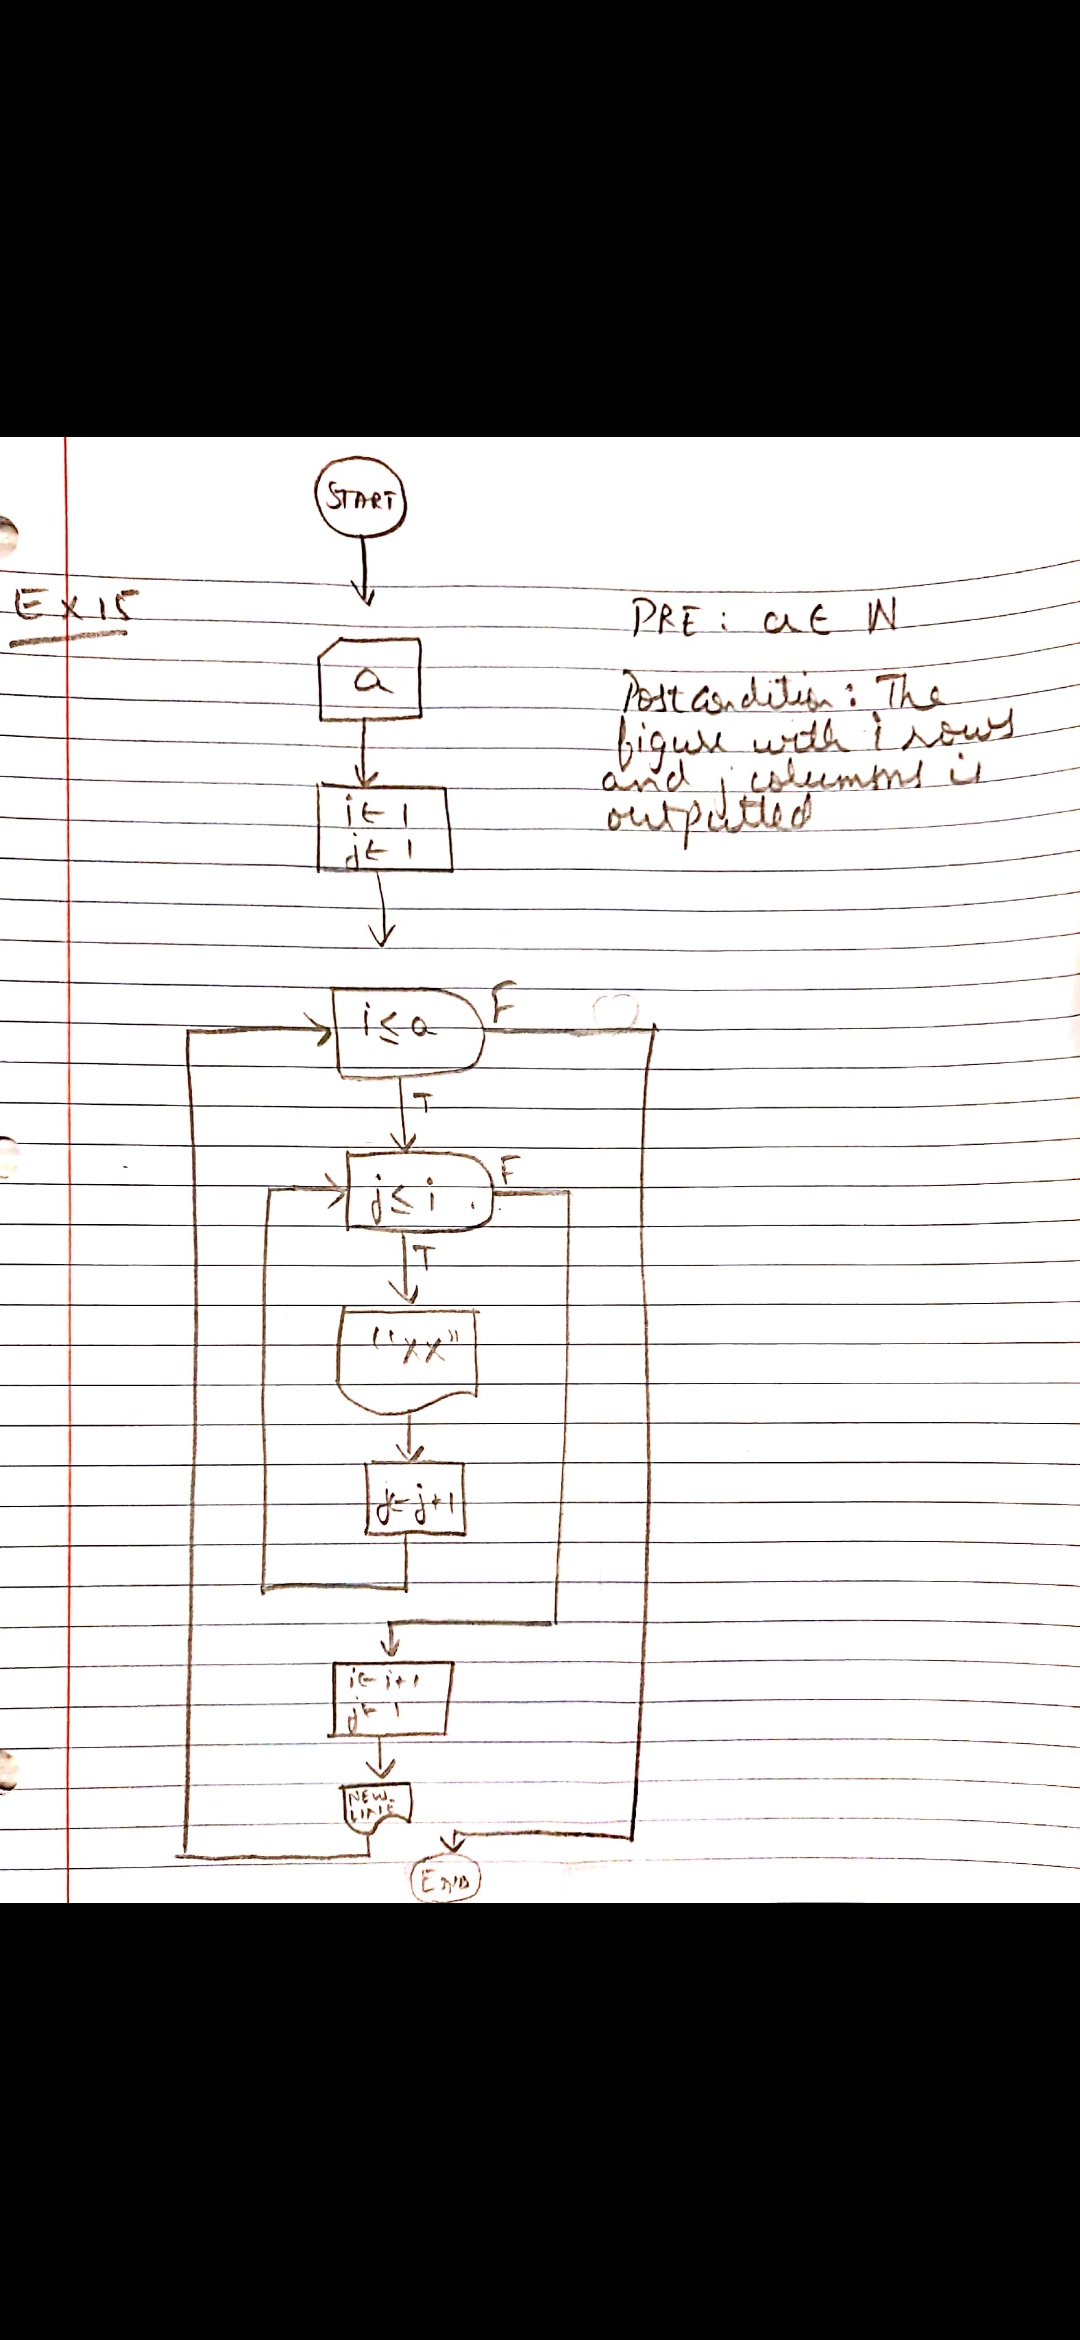 START
EX 15
PRE : a ∈ ℕ
a
Postcondition : The
figure with i rows
and j columns is
outputted
i ← 1
j ← 1
i ≤ a
F
T
j ≤ i
F
T
"XX"
j ← j+1
i ← i+1
j ← 1
NEW-
LINE
END